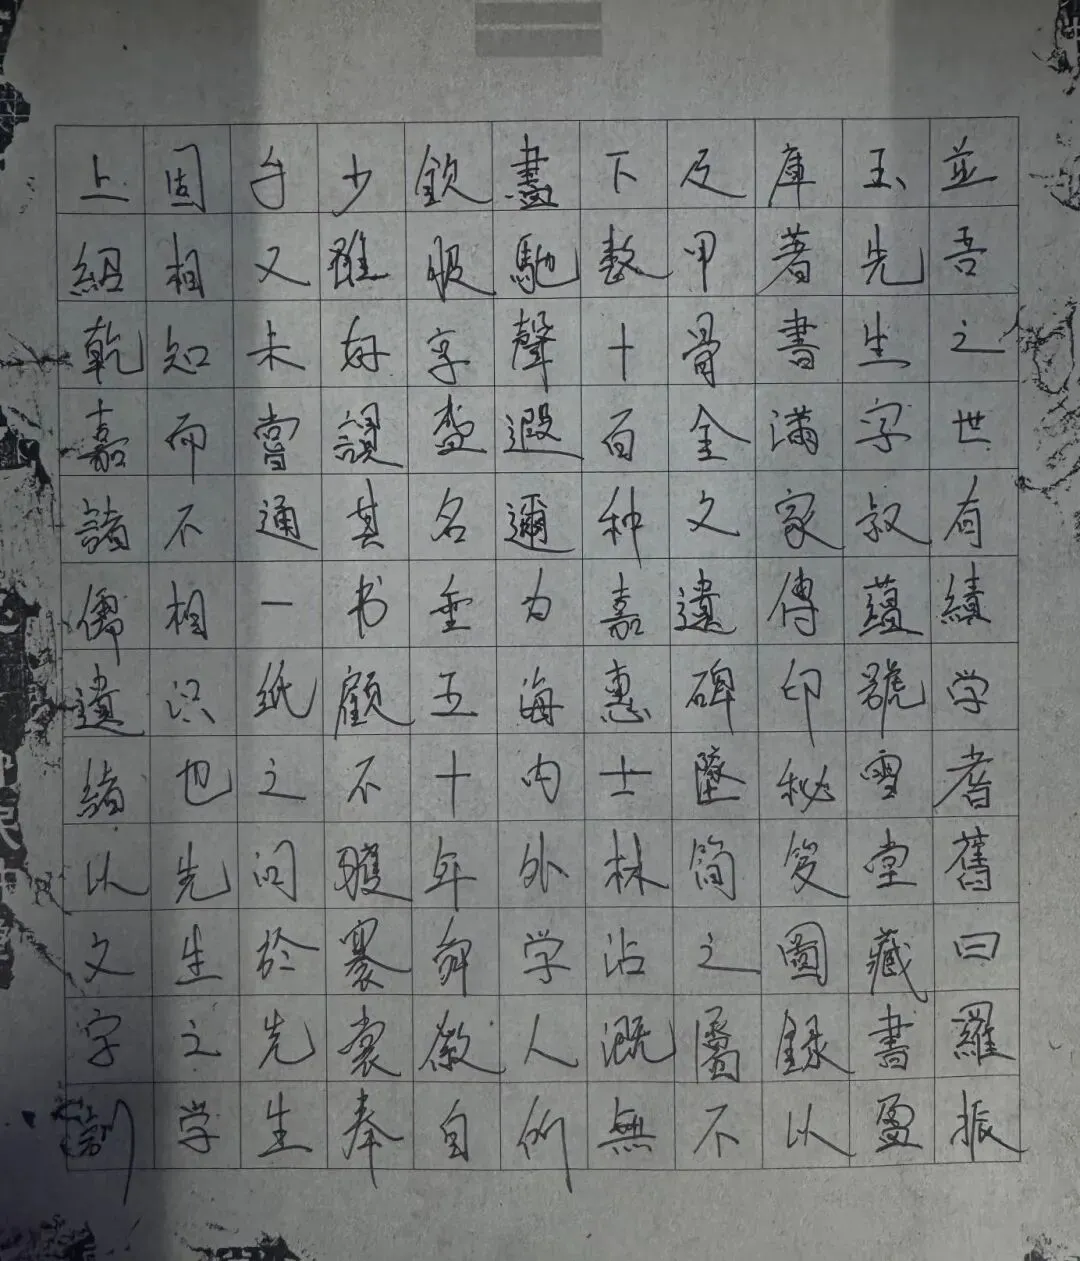 並吾之世有績学耆舊曰羅振
玉先生字叔蘊號雪堂藏書盈
庫著書滿家傳印秘笈圖録以
及甲骨金文遺碑墜簡之屬不
下數十百种嘉惠士林沾溉無
盡馳聲遐邇为海内外学人所
欽服享盛名垂五十年舜徽自
少雖好讀其书顧不獲褰裳奉
手又未嘗通一纸之问於先生
固相知而不相识也先生之学
上紹乾嘉諸儒遺緒以文字訓